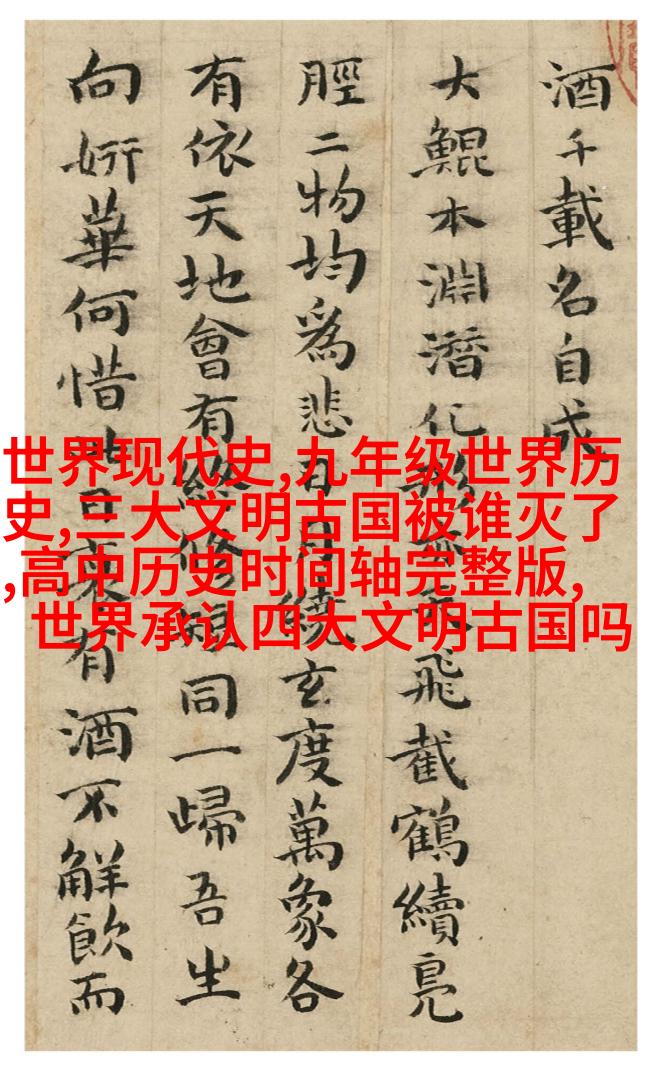 酒千載名自成
大鯤本淵潛化飛截鶴續鳧
脛二物均為悲日月繞玄度萬象各
有依天地會有終脩短同一歸吾生
向妍華何惜此日衰有酒不觧飲而
世界现代史,九年级世界历
史,三大文明古国被谁灭了
,高中历史时间轴完整版,
世界承认四大文明古国吗